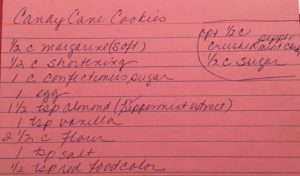 Candy Cane Cookies
1/2 c margarine (soft)
1/2 c shortening
1 c confectioners sugar
1 egg
1 1/2 tsp almond (peppermint extract)
1 tsp vanilla
2 1/2 c flour
1 tsp salt
1/2 tsp red food color
opt 1/2 c
crushed peppermint candy
1/2 c sugar